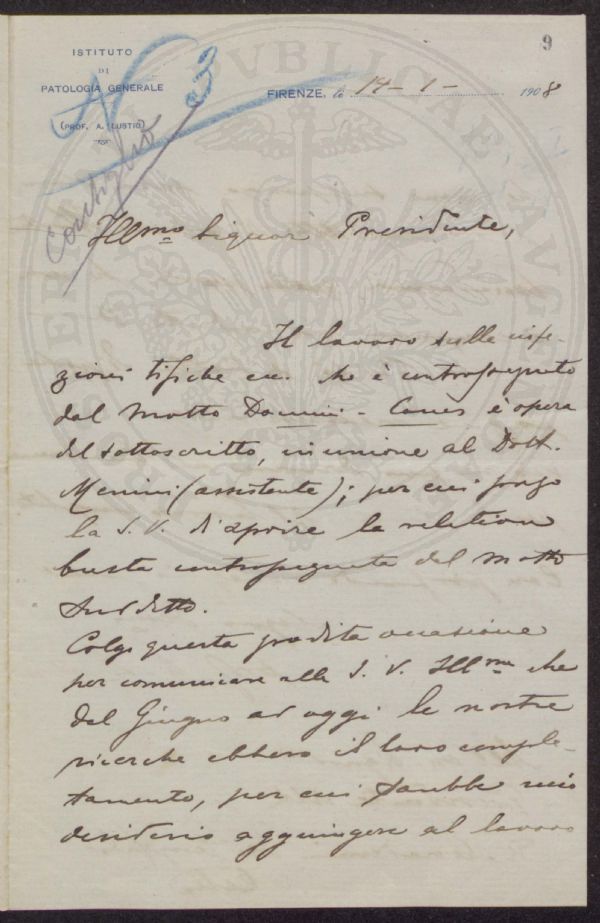 9
ISTITUTO
DI
PATOLOGIA GENERALE
(PROF. A. LUSTIG)
FIRENZE, lo 14 - 1 - 1908
N 3
Consiglio
Illmo Signor Presidente,
Il lavoro sulle infe-
zioni tifiche ecc. che è contrassegnato
dal Motto Domini - Canes è opera
del sottoscritto, in unione al Dott.
(assistente); per cui prego
la S. V. d'aprire la relativa
busta contrassegnata del Motto
suddetto.
Colgo questa gradita occasione
per comunicare alla S. V. Illma che
dal Giugno ad oggi le nostre
ricerche ebbero il loro comple-
tamento, per cui sarebbe mio
desiderio aggiungere al lavoro